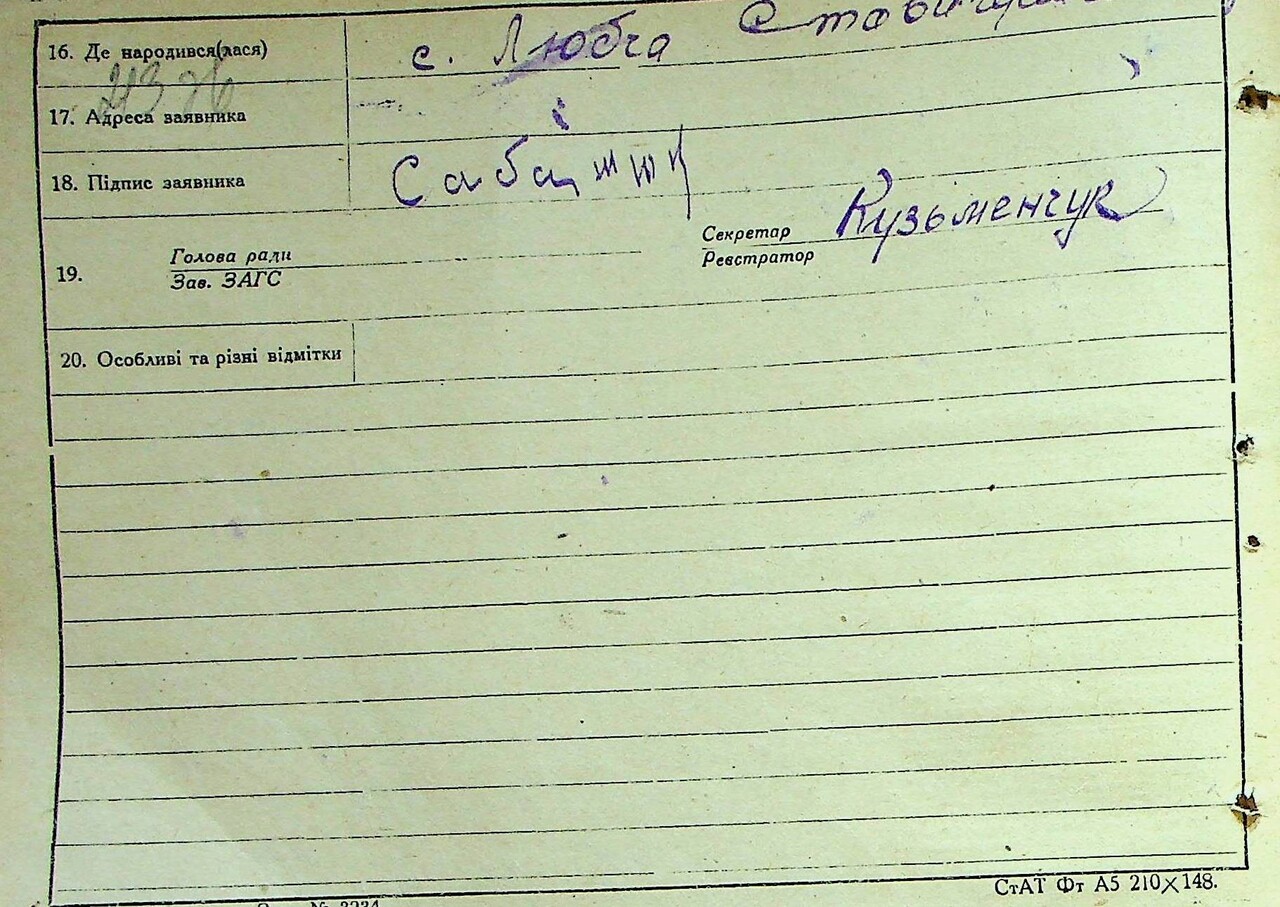 16. Де народився(лася) с. Любча
17. Адреса заявника
18. Підпис заявника
Секретар Кузьменчук
Реєстратор
19. Голова ради
Зав. ЗАГС
20. Особливі та різні відмітки
СтАТ Фт А5 210×148.